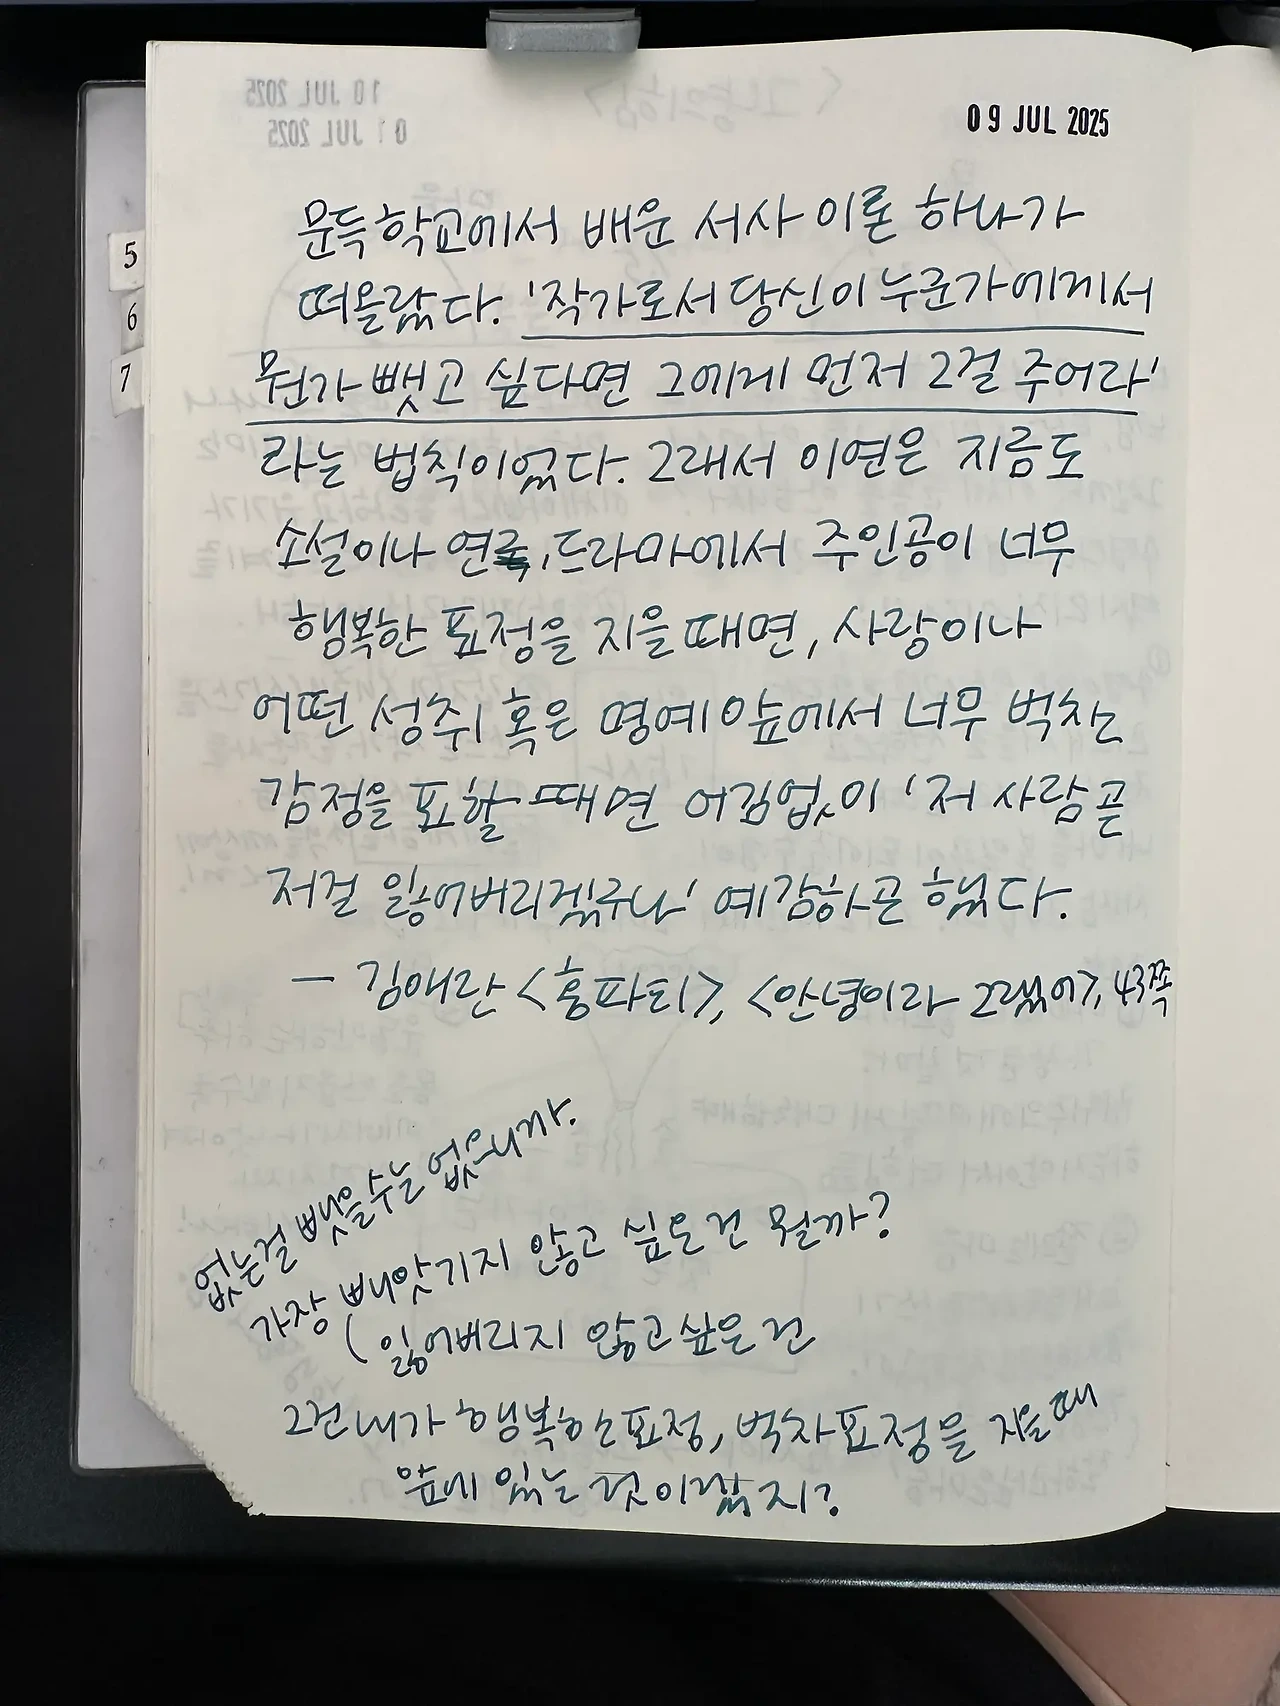 09 JUL 2025
5
6
7
문득 학교에서 배운 서사 이론 하나가
떠올랐다. '작가로서 당신이 누군가에게서
뭔가 뺏고 싶다면 그에게 먼저 그걸 주어라'
라는 법칙이었다. 그래서 이연은 지금도
소설이나 연극, 드라마에서 주인공이 너무
행복한 표정을 지을 때면, 사랑이나
어떤 성취 혹은 명예 앞에서 너무 벅찬
감정을 표할 때면 어김없이 '저 사람 곧
저걸 잃어버리겠구나' 예감하곤 했다.
— 김애란 <홈파티>, <안녕이라 그랬어>, 43쪽
없는걸 뺏을수는 없으니까.
가장 빼앗기지 않고 싶은건 뭘까?
( 잃어버리지 않고 싶은건
그건 내가 행복한 표정, 벅찬 표정을 지을 때
앞에 있는 것이랬지?